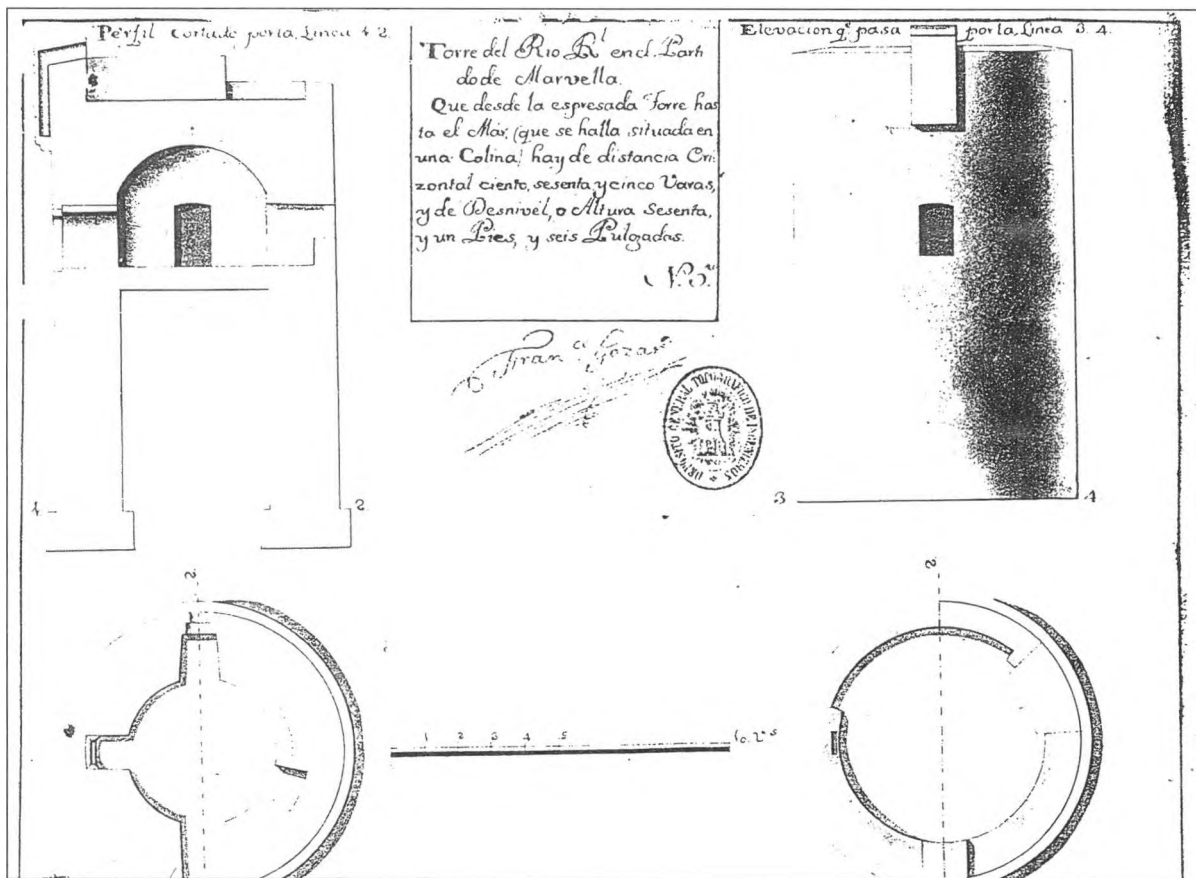 Pérfil Cortado por la Linea 1 2.
Torre del Rio Rl en el Parti
do de Marvella.
Que desde la espresada Torre has
ta el Mar, (que se halla situada en
una Colina) hay de distancia Ori:
zontal ciento, sesenta y cinco Varas,
y de Desnivél, o Altura Sesenta,
y un Pies, y seis Pulgadas.
Elevacion qe. pasa por la Linea 3. 4.
DEPOSITO GENERAL TOPOGRAFICO DE INGENIEROS
1 2
3 4
2.
2.
1 2 3 4 5 10. Vs